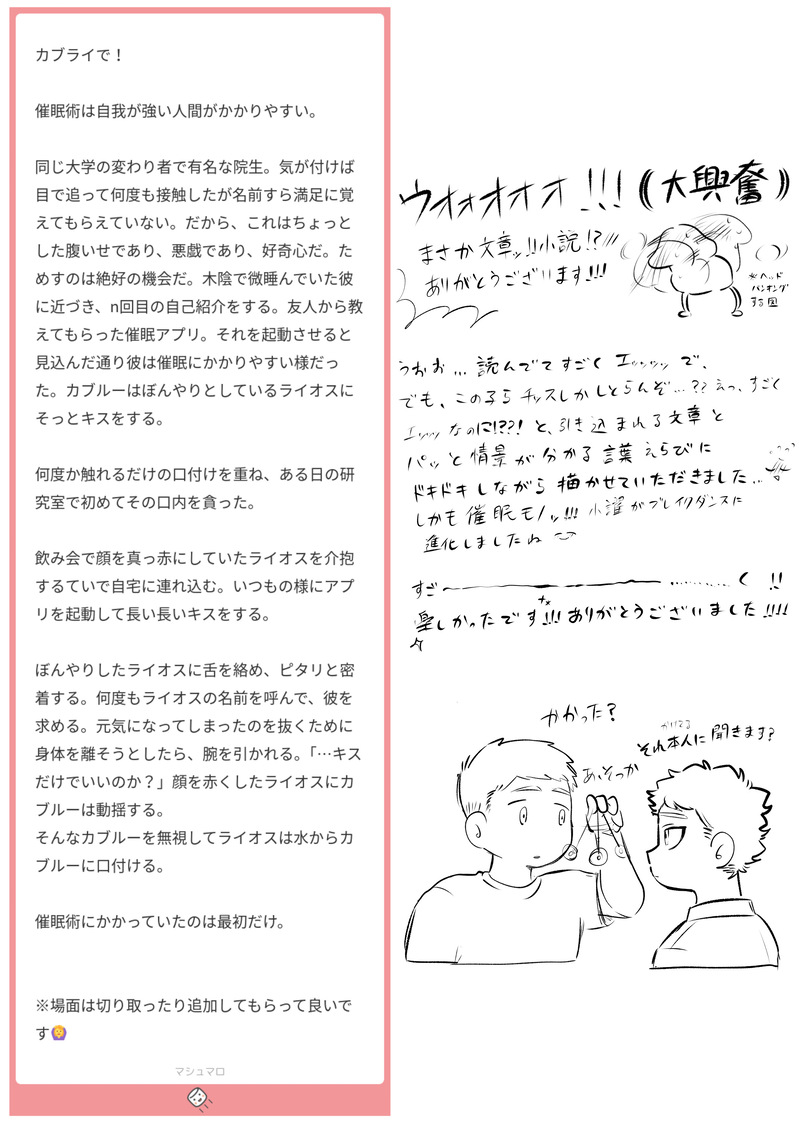 カブライで！
催眠術は自我が強い人間がかかりやすい。
同じ大学の変わり者で有名な院生。気が付けば
目で追って何度も接触したが名前すら満足に覚
えてもらえていない。だから、これはちょっと
した腹いせであり、悪戯であり、好奇心だ。た
めすのは絶好の機会だ。木陰で微睡んでいた彼
に近づき、n回目の自己紹介をする。友人から教
えてもらった催眠アプリ。それを起動させると
見込んだ通り彼は催眠にかかりやすい様だっ
た。カブルーはぼんやりとしているライオスに
そっとキスをする。
何度か触れるだけの口付けを重ね、ある日の研
究室で初めてその口内を貪った。
飲み会で顔を真っ赤にしていたライオスを介抱
するていで自宅に連れ込む。いつもの様にアプ
リを起動して長い長いキスをする。
ぼんやりしたライオスに舌を絡め、ピタリと密
着する。何度もライオスの名前を呼んで、彼を
求める。元気になってしまったのを抜くために
身体を離そうとしたら、腕を引かれる。「…キス
だけでいいのか？」顔を赤くしたライオスにカ
ブルーは動揺する。
そんなカブルーを無視してライオスは水からカ
ブルーに口付ける。
催眠術にかかっていたのは最初だけ。
※場面は切り取ったり追加してもらって良いで
す🙆
マシュマロ
ウオォオオオ!!!(大興奮)
まさか文章ッ!!小説!?
ありがとうございます!!!
※ヘッド
バンギング
する図
うおお…読んでてすごくエッッッッで、
でも、この子らチッスしかしとらんぞ…??えっ、すごく
エッッッなのに!??!と、引き込まれる文章と
パッと情景が分かる言葉えらびに
ドキドキしながら描かせていただきました…
しかも催眠モノッ!!!小躍がブレイクダンスに
進化しましたね
すご〜…………く!!
楽しかったです!!!ありがとうございました!!!!
かかった?
かけてる
それ本人に聞きます?
あ、そっか